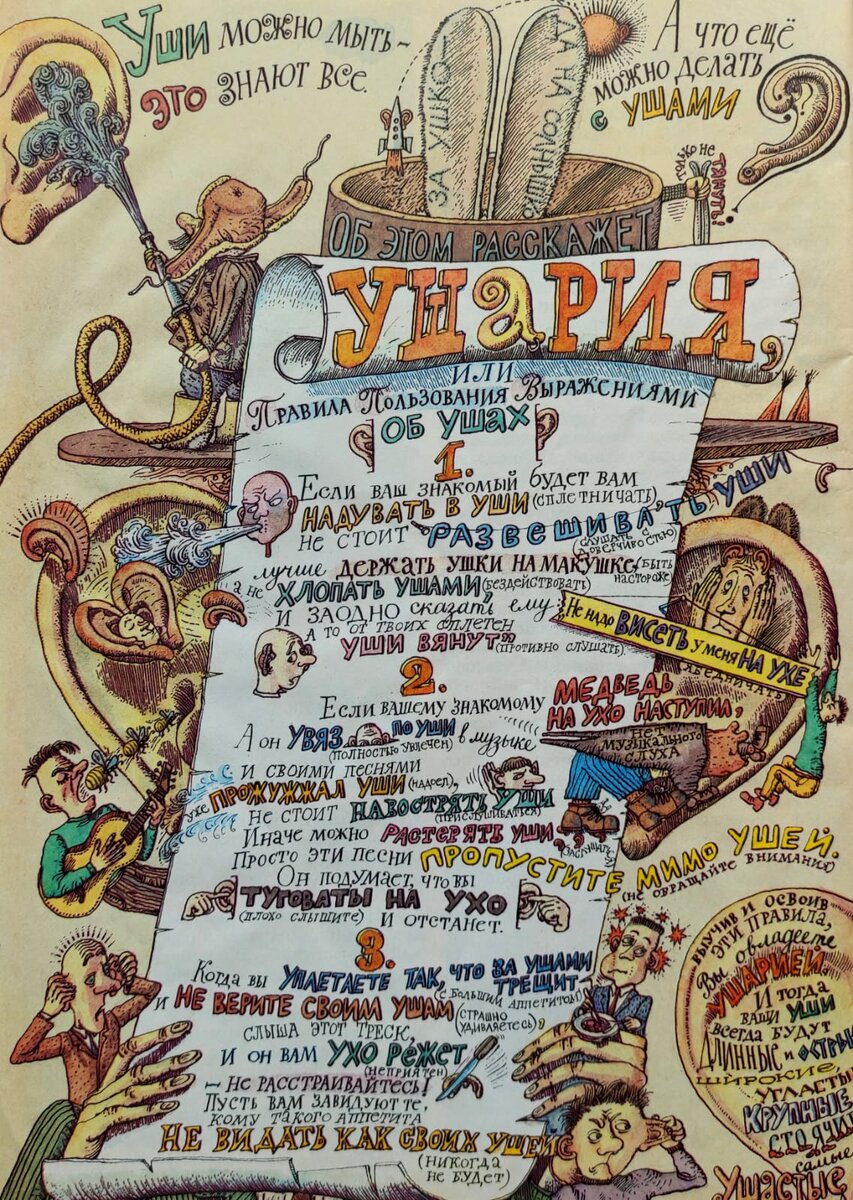 Уши можно мыть –
это знают все.
А что ещё
можно делать
с ушами
за ушко –
да на солнышко
тянуть!
Об этом расскажет
Ушария,
или
Правила Пользования Выражениями
об ушах
1.
Если ваш знакомый будет вам
надувать в уши (сплетничать)
не стоит развешивать уши
(слушать с доверчивостью)
лучше держать ушки на макушке, (быть настороже)
а не хлопать ушами, (бездействовать)
и заодно сказать ему:
"Не надо висеть у меня на ухе
ябедничать
а то от твоих сплетен
уши вянут" (противно слушать)
2.
Если вашему знакомому медведь
на ухо наступил,
нет музыкального слуха
А он увяз по уши в музыке
(полностью увлечён)
и своими песнями
уже прожужжал уши (надоел),
не стоит навострять уши
(прислушиваться)
Иначе можно растерять уши,
(заслушаться)
Просто эти песни пропустите мимо ушей.
(не обращайте внимания)
Он подумает, что вы
туговаты на ухо
(плохо слышите) и отстанет.
3.
Когда вы уплетаете так, что за ушами
трещит –
(с большим аппетитом)
и не верите своим ушам
(страшно удивляетесь),
слыша этот треск,
и он вам ухо режет
(неприятен)
– не расстраивайтесь!
Пусть вам завидуют те,
кому такого аппетита
не видать как своих ушей
(никогда не будет)
Выучив и освоив
эти правила,
Вы овладеете
Ушарией
И тогда
ваши уши
всегда будут
длинные и
широкие,
крупные
стоячие
самые
Ушастые